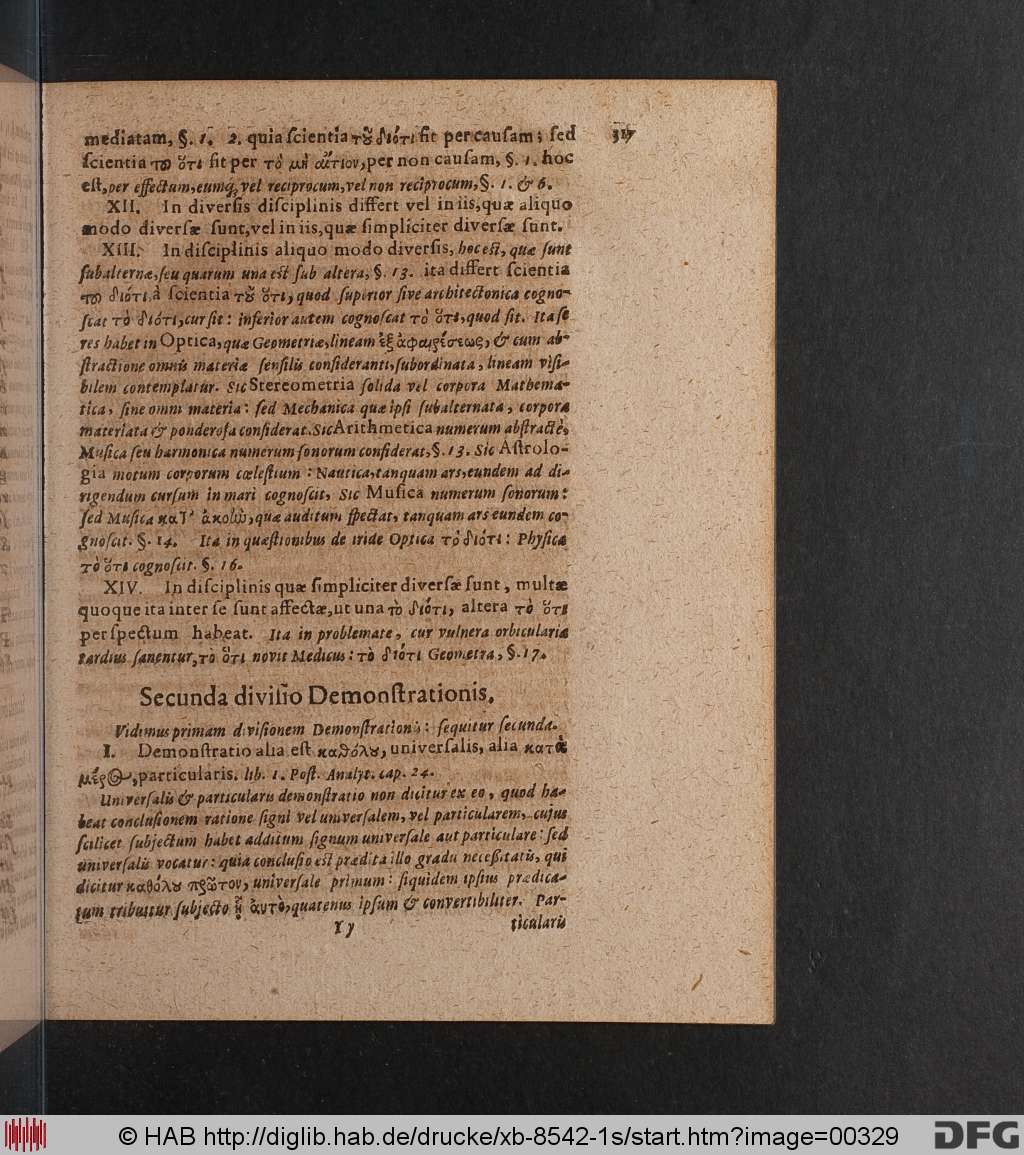 mediatam, §. 1. 2. quia ſcientia τȣ͂ διότι fit per cauſam; ſed
ſcientia τω ὅτι fit per τὸ μὴ αἴτιον, per non cauſam, §. 1. hoc
eſt, per effectum, eumq́, vel reciprocum, vel non reciprocum, §. 1. & 6.
XII. In diverſis diſciplinis differt vel in iis, quæ aliquo
modo diverſæ ſunt, vel in iis, quæ ſimpliciter diverſæ ſunt.
XIII. In diſciplinis aliquo modo diverſis, hoc eſt, quæ ſunt
ſubalternæ, ſeu quarum una eſt ſub altera, §. 13. ita differt ſcientia
τω διότι à ſcientia τȣ͂ ὅτι, quod ſuperior ſive architectonica cogno-
ſcat τὸ διότι, cur ſit: inferior autem cognoſcat τὸ ὅτι, quod ſit. Ita ſe
res habet in Optica, quæ Geometriæ, lineam ἐξ ἀφαιρέσεως, & cum ab-
ſtractione omnis materiæ ſenſilis conſideranti, ſubordinata, lineam viſi-
bilem contemplatur. Sic Stereometria ſolida vel corpora Mathema-
tica, ſine omni materia: ſed Mechanica quæ ipſi ſubalternata, corpora
materiata & ponderoſa conſiderat. Sic Arithmetica numerum abſtractè,
Muſica ſeu harmonica numerum ſonorum conſiderat, §. 13. Sic Aſtrolo-
gia motum corporum cœleſtium: Nautica, tanquam ars, eundem ad di-
rigendum curſum in mari cognoſcit, Sic Muſica numerum ſonorum:
ſed Muſica κατ' ἀκοὼ, quæ auditum ſpectat, tanquam ars eundem co-
gnoſcit. §. 14. Ita in quæſtionibus de iride Optica τὸ διότι: Phyſica
τὸ ὅτι cognoſcit. §. 16.
XIV. In diſciplinis quæ ſimpliciter diverſæ ſunt, multæ
quoque ita inter ſe ſunt affectæ, ut una τὸ διότι, altera τὸ ὅτι
perſpectum habeat. Ita in problemate, cur vulnera orbicularia
tardius ſanentur, τὸ ὅτι novit Medicus: τὸ διότι Geometra, §. 17.
Secunda diviſio Demonſtrationis.
Vidimus primam diviſionem Demonſtrationis: ſequitur ſecunda.
I. Demonſtratio alia eſt καθόλου, univerſalis, alia κατὰ
μέρος, particularis. lib. 1. Poſt. Analyt. cap. 24.
Univerſalis & particularis demonſtratio non dicitur ex eo, quod ha-
beat concluſionem ratione ſigni vel univerſalem, vel particularem, cujus
ſcilicet ſubjectum habet additum ſignum univerſale aut particulare: ſed
univerſalis vocatur: quia concluſio eſt prædita illo gradu neceßitatis, qui
dicitur καθόλου πρῶτον, univerſale primum: ſiquidem ipſius prædica-
tum tribuitur ſubjecto ᾗ ἀυτὸ, quatenus ipſum & convertibiliter. Par-
Yy ticularis
© HAB http://diglib.hab.de/drucke/xb-8542-1s/start.htm?image=00329
DFG